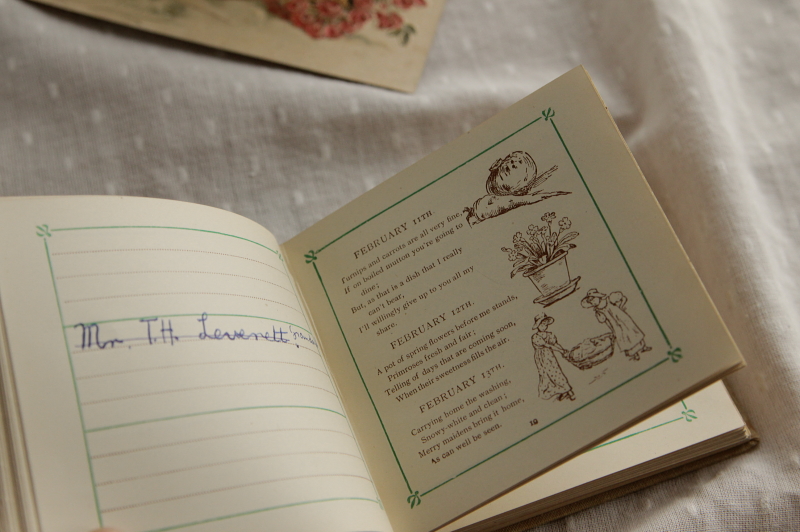 Mr. T.H. Levenett
FEBRUARY 11TH
Turnips and carrots are all very fine,
If on boiled mutton you're going to
dine;
But, as that is a dish that I really
can't bear,
I'll willingly give up to you all my
share.
FEBRUARY 12TH.
A pot of spring flowers before me stands,
Primroses fresh and fair;
Telling of days that are coming soon,
When their sweetness fills the air.
FEBRUARY 13TH.
Carrying home the washing,
Snowy-white and clean;
Merry maidens bring it home,
As can well be seen.
19